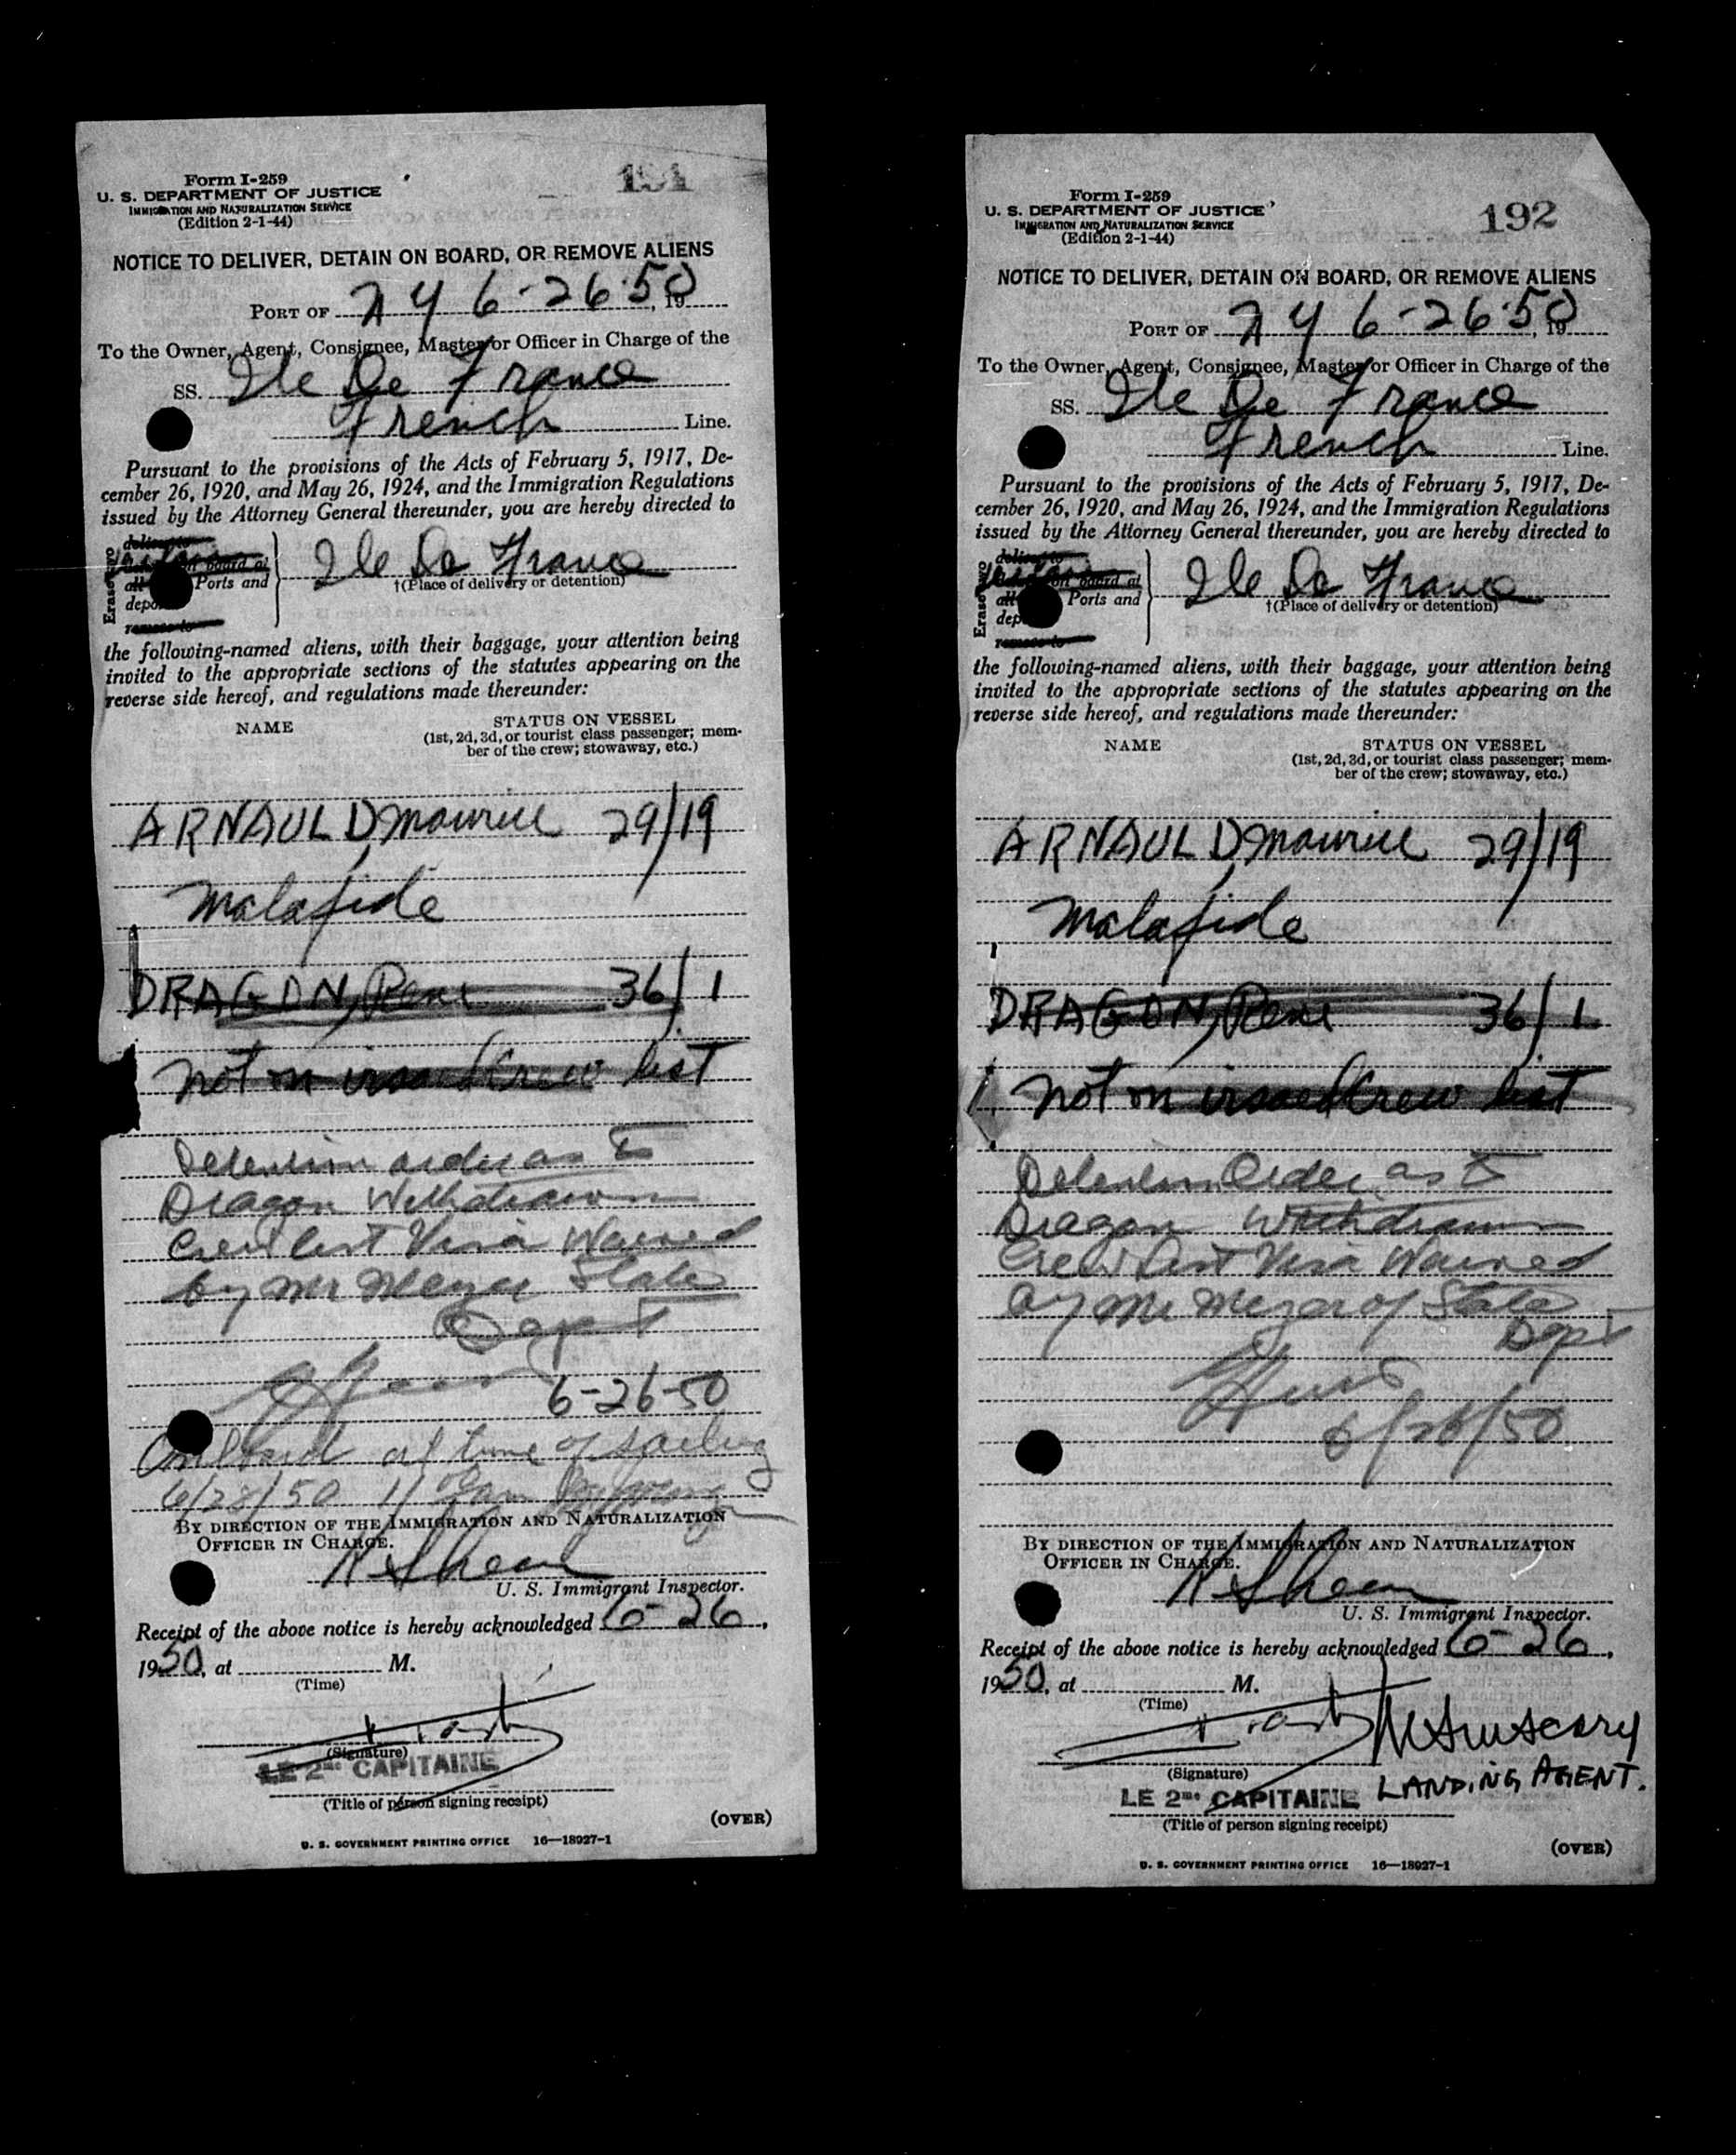 Form I-259
U. S. DEPARTMENT OF JUSTICE
IMMIGRATION AND NATURALIZATION SERVICE
(Edition 2-1-44)
191
NOTICE TO DELIVER, DETAIN ON BOARD, OR REMOVE ALIENS
PORT OF NY 6-26-50, 19
To the Owner, Agent, Consignee, Master or Officer in Charge of the
SS. Ile De France
French Line.
Pursuant to the provisions of the Acts of February 5, 1917, De-
cember 26, 1920, and May 26, 1924, and the Immigration Regulations
issued by the Attorney General thereunder, you are hereby directed to
deliver to
on board at
all Ports and
Ile De France
†(Place of delivery or detention)
remove to
the following-named aliens, with their baggage, your attention being
invited to the appropriate sections of the statutes appearing on the
reverse side hereof, and regulations made thereunder:
NAME STATUS ON VESSEL
(1st, 2d, 3d, or tourist class passenger; mem-
ber of the crew; stowaway, etc.)
ARNAULD, Maurice 29/19
Malafide
DRAGON, Rene 36/1
Not on visaed Crew list
Detention order as to
Dragon Withdrawn
Crew list Visa Waived
by Mr State
Dept
6-26-50
On board at time of sailing
6/28/50 11
BY DIRECTION OF THE IMMIGRATION AND NATURALIZATION
OFFICER IN CHARGE.
U. S. Immigrant Inspector.
Receipt of the above notice is hereby acknowledged 6-26,
1950, at M.
(Time)
(Signature)
LE 2me CAPITAINE
(Title of person signing receipt)
(OVER)
U. S. GOVERNMENT PRINTING OFFICE 16—18927-1
Form I-259
U. S. DEPARTMENT OF JUSTICE
IMMIGRATION AND NATURALIZATION SERVICE
(Edition 2-1-44)
192
NOTICE TO DELIVER, DETAIN ON BOARD, OR REMOVE ALIENS
PORT OF NY 6-26-50, 19
To the Owner, Agent, Consignee, Master or Officer in Charge of the
SS. Ile De France
French Line.
Pursuant to the provisions of the Acts of February 5, 1917, De-
cember 26, 1920, and May 26, 1924, and the Immigration Regulations
issued by the Attorney General thereunder, you are hereby directed to
deliver to
on board at
all Ports and
Ile De France
†(Place of delivery or detention)
remove to
the following-named aliens, with their baggage, your attention being
invited to the appropriate sections of the statutes appearing on the
reverse side hereof, and regulations made thereunder:
NAME STATUS ON VESSEL
(1st, 2d, 3d, or tourist class passenger; mem-
ber of the crew; stowaway, etc.)
ARNAULD, Maurice 29/19
Malafide
DRAGON, Rene 36/1
Not on visaed Crew list
Detention Order as to
Dragon Withdrawn
Crew list Visa Waived
by Mr of State
Dept
6/26/50
BY DIRECTION OF THE IMMIGRATION AND NATURALIZATION
OFFICER IN CHARGE.
U. S. Immigrant Inspector.
Receipt of the above notice is hereby acknowledged 6-26,
1950, at M.
(Time)
(Signature)
LE 2me CAPITAINE LANDING AGENT.
(Title of person signing receipt)
(OVER)
U. S. GOVERNMENT PRINTING OFFICE 16—18927-1